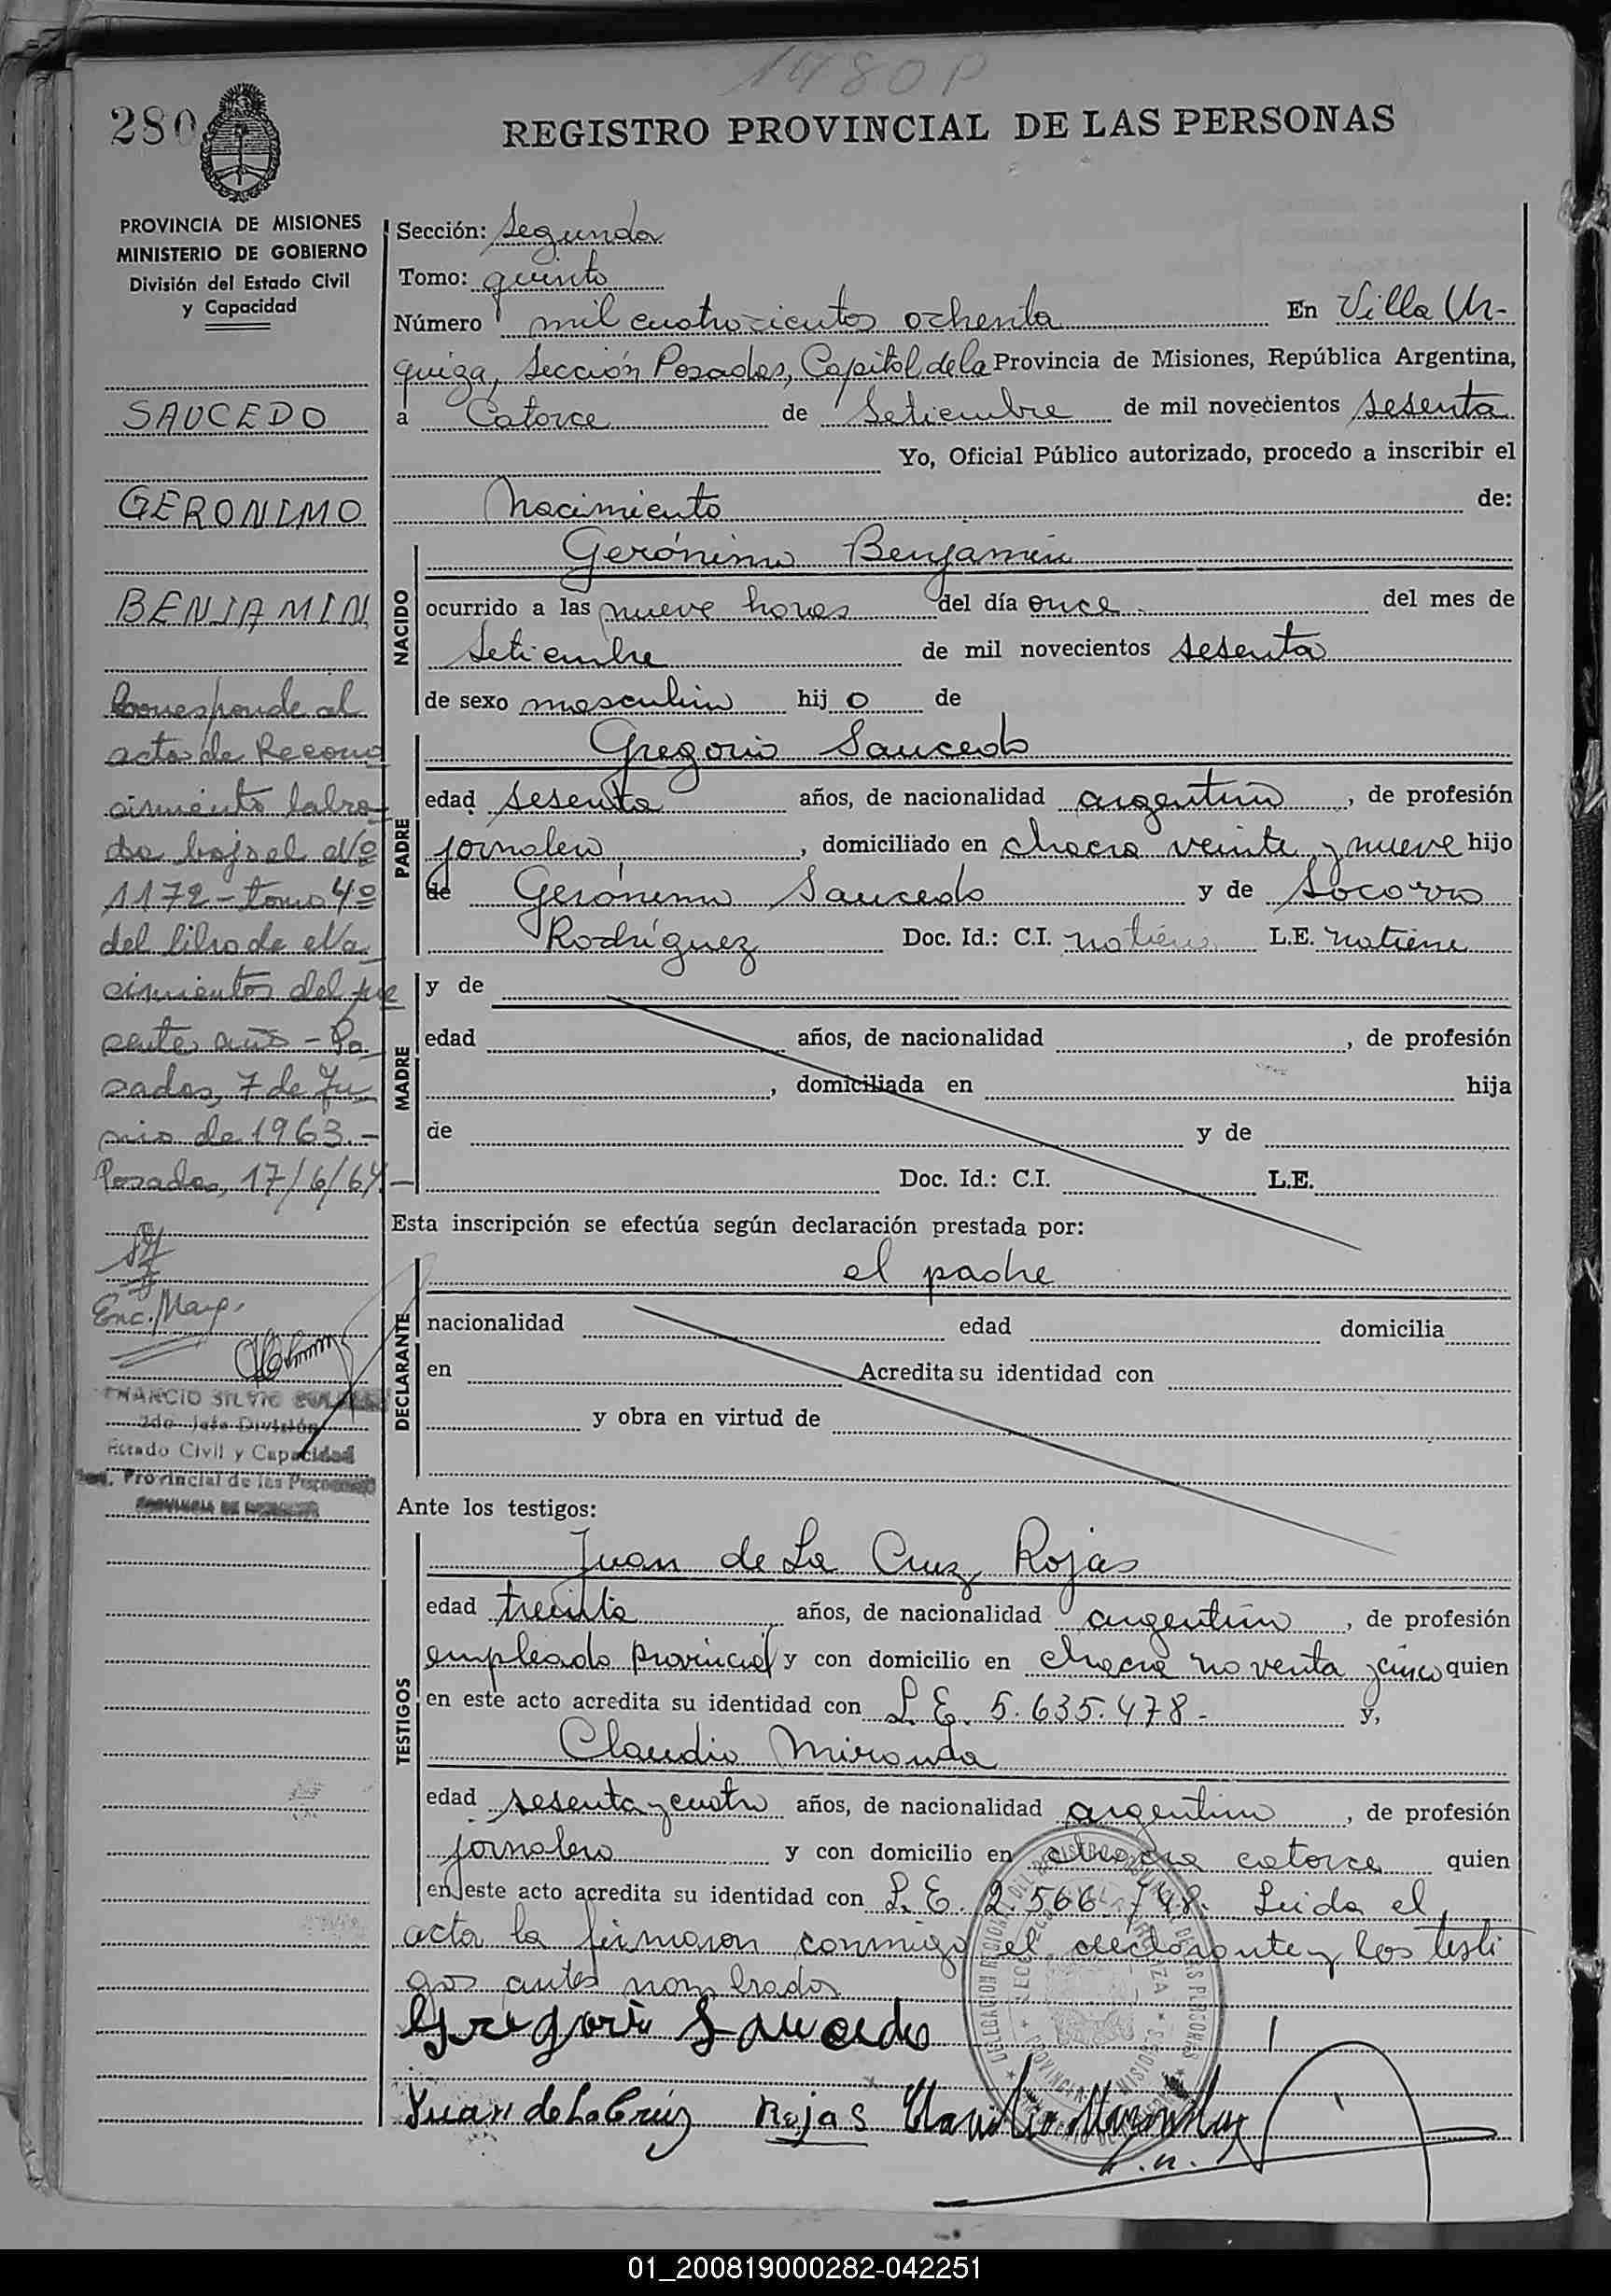 1480 P
280
REGISTRO PROVINCIAL DE LAS PERSONAS
PROVINCIA DE MISIONES
MINISTERIO DE GOBIERNO
División del Estado Civil
y Capacidad
SAUCEDO
GERONIMO
BENJAMIN
Corresponde al
acta de Recono
cimiento labra
da bajo el Nº
1172 - tomo 4º
del libro de Na
cimientos del pre
sente año - Po
sadas, 7 de Ju
nio de 1963.-
Posadas, 17/6/64.-
Enc. Marg.
2do Jefe División
Estado Civil y Capacidad
Provincial de las Personas
PROVINCIA DE MISIONES
Sección: Segunda
Tomo: quinto
Número mil cuatrocientos ochenta En Villa Ur-
quiza, Sección Posadas, Capital de la Provincia de Misiones, República Argentina,
a Catorce de Setiembre de mil novecientos sesenta
Yo, Oficial Público autorizado, procedo a inscribir el
Nacimiento de:
NACIDO
Gerónimo Benjamin
ocurrido a las nueve horas del día once del mes de
Setiembre de mil novecientos sesenta
de sexo masculino hij o de
PADRE
Gregorio Saucedo
edad sesenta años, de nacionalidad argentino, de profesión
jornalero, domiciliado en chacra veinte y nueve hijo
de Gerónimo Saucedo y de Socorro
Rodríguez Doc. Id.: C.I. no tiene L.E. no tiene
MADRE
y de
edad años, de nacionalidad , de profesión
, domiciliada en hija
de y de
Doc. Id.: C.I. L.E.
Esta inscripción se efectúa según declaración prestada por:
DECLARANTE
el padre
nacionalidad edad domicilia
en Acredita su identidad con
y obra en virtud de
Ante los testigos:
TESTIGOS
Juan de La Cruz Rojas
edad treinta años, de nacionalidad argentino, de profesión
empleado provincial y con domicilio en chacra noventa y cinco quien
en este acto acredita su identidad con L.E. 5.635.478.- y,
Claudio Miranda
edad sesenta y cuatro años, de nacionalidad argentino, de profesión
jornalero y con domicilio en chacra catorce quien
en este acto acredita su identidad con L.E. 2.566.748. Leida el
acta la firmaron conmigo el declarante y los testi
gos antes nombrados
Gregorio Saucedo
Juan de La Cruz Rojas Claudio Miranda
01_200819000282-042251